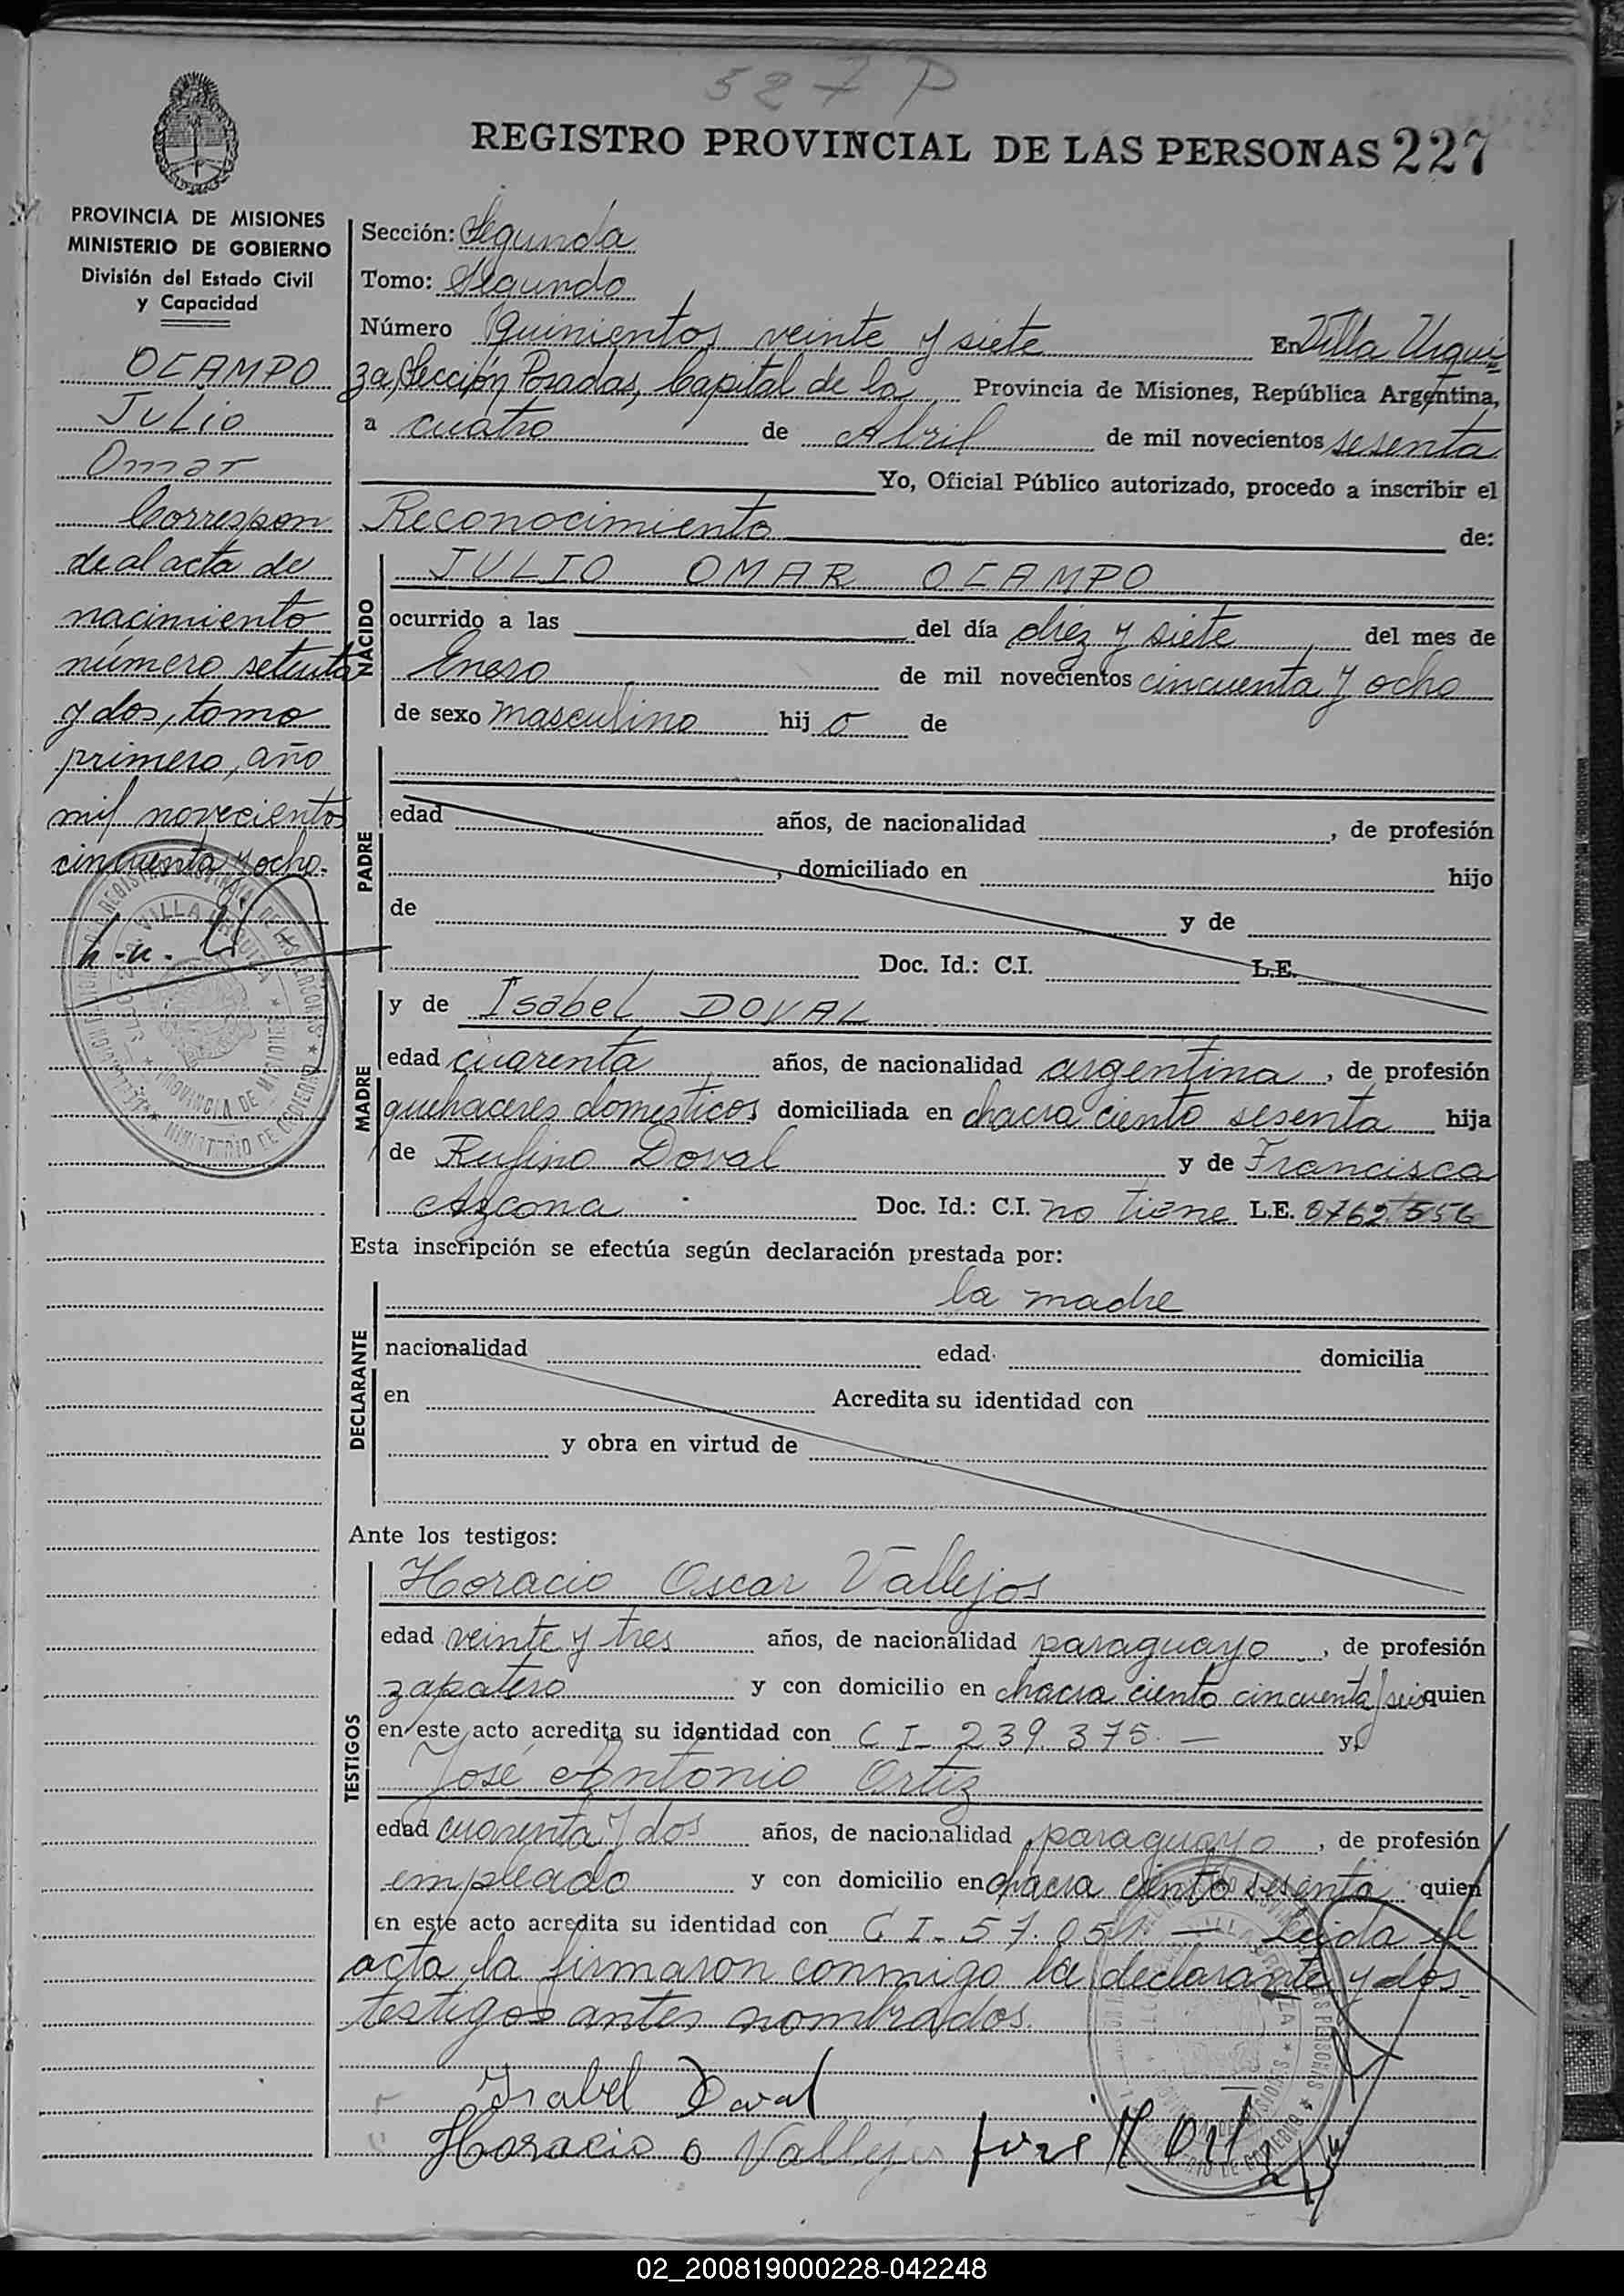 527 P
REGISTRO PROVINCIAL DE LAS PERSONAS 227
PROVINCIA DE MISIONES
MINISTERIO DE GOBIERNO
División del Estado Civil
y Capacidad
OCAMPO
Julio
Omar
Correspon
de al acta de
nacimiento
número setenta
y dos, tomo
primero, año
mil novecientos
cincuenta y ocho.
Sección: Segunda
Tomo: Segundo
Número Quinientos veinte y siete En Villa Urqui
za, Sección Posadas, Capital de la Provincia de Misiones, República Argentina,
a cuatro de Abril de mil novecientos sesenta
Yo, Oficial Público autorizado, procedo a inscribir el
Reconocimiento de:
NACIDO
JULIO OMAR OCAMPO
ocurrido a las del día diez y siete del mes de
Enero de mil novecientos cincuenta y ocho
de sexo masculino hij o de
PADRE
edad años, de nacionalidad , de profesión
, domiciliado en hijo
de y de
Doc. Id.: C.I. L.E.
MADRE
y de Isabel DOVAL
edad cuarenta años, de nacionalidad argentina , de profesión
quehaceres domesticos domiciliada en chacra ciento sesenta hija
de Rufino Doval y de Francisca
Azcona Doc. Id.: C.I. no tiene L.E.
Esta inscripción se efectúa según declaración prestada por:
DECLARANTE
la madre
nacionalidad edad domicilia
en Acredita su identidad con
y obra en virtud de
Ante los testigos:
TESTIGOS
Horacio Oscar Vallejos
edad veinte y tres años, de nacionalidad paraguayo , de profesión
zapatero y con domicilio en chacra ciento cincuenta y seis quien
en este acto acredita su identidad con C I - 239.375.— y,
José Antonio Ortiz
edad cuarenta y dos años, de nacionalidad paraguayo , de profesión
empleado y con domicilio en chacra ciento sesenta quien
en este acto acredita su identidad con C I - 57.051.— Leida el
acta la firmaron conmigo la declarante y los
testigos antes nombrados.
Isabel Doval
Horacio o Vallejos José A Ortiz
02_200819000228-042248